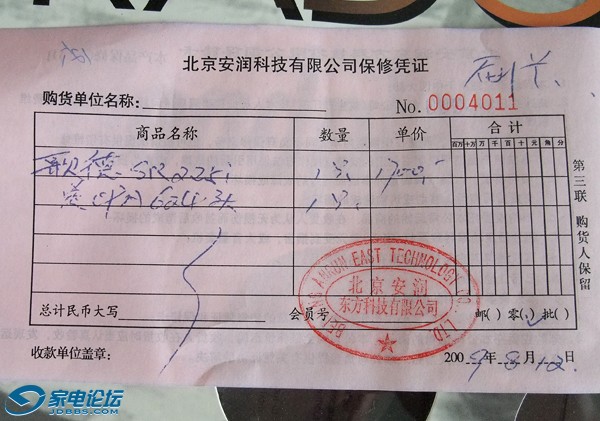 北京安润科技有限公司保修凭证
购货单位名称：
No. 0004011
商品名称 数量 单价 合计
百万 十万 万 千 百 十 元 角 分
德 SR225i 1 1700
1
第三联 购货人保留
BEIJING ANRUN EAST TECHNOLOGY CO., LTD
北京安润
东方科技有限公司
总计民币大写 会员号 邮( ) 零( ) 批( )
收款单位盖章： 2009年8月12日
家电论坛
JDBBS.COM